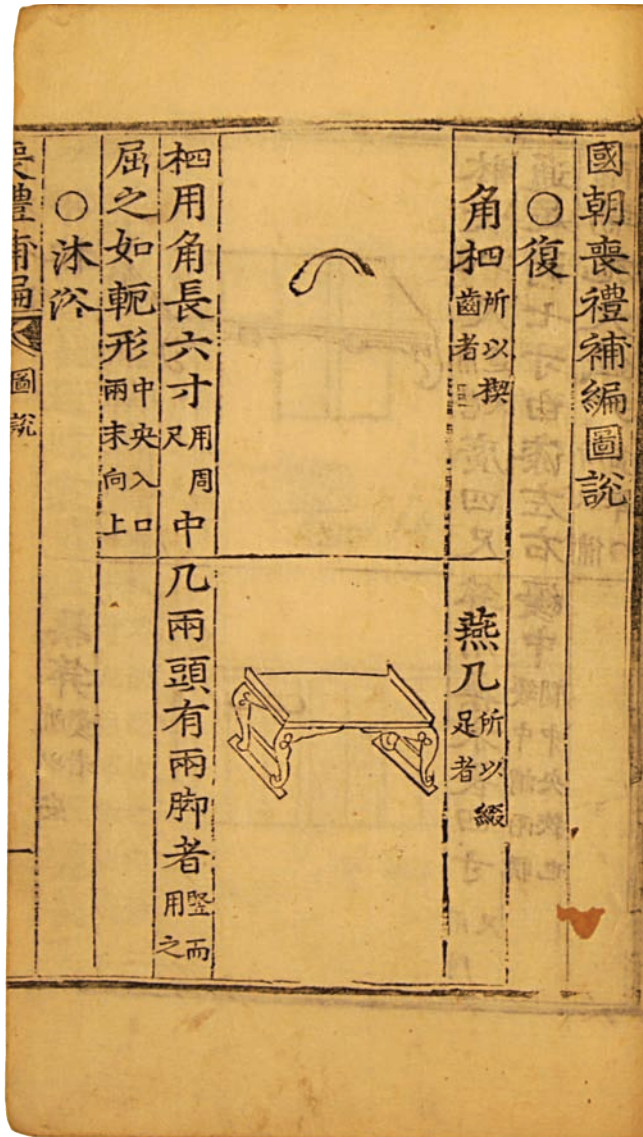 國朝喪禮補編圖說
○復
角柶所以楔齒者
燕几所以綴足者
柶用角長六寸用周尺中
屈之如軛形中央入口兩末向上
几兩頭有兩脚者竪而用之
○沐浴
喪禮補編 圖說 一